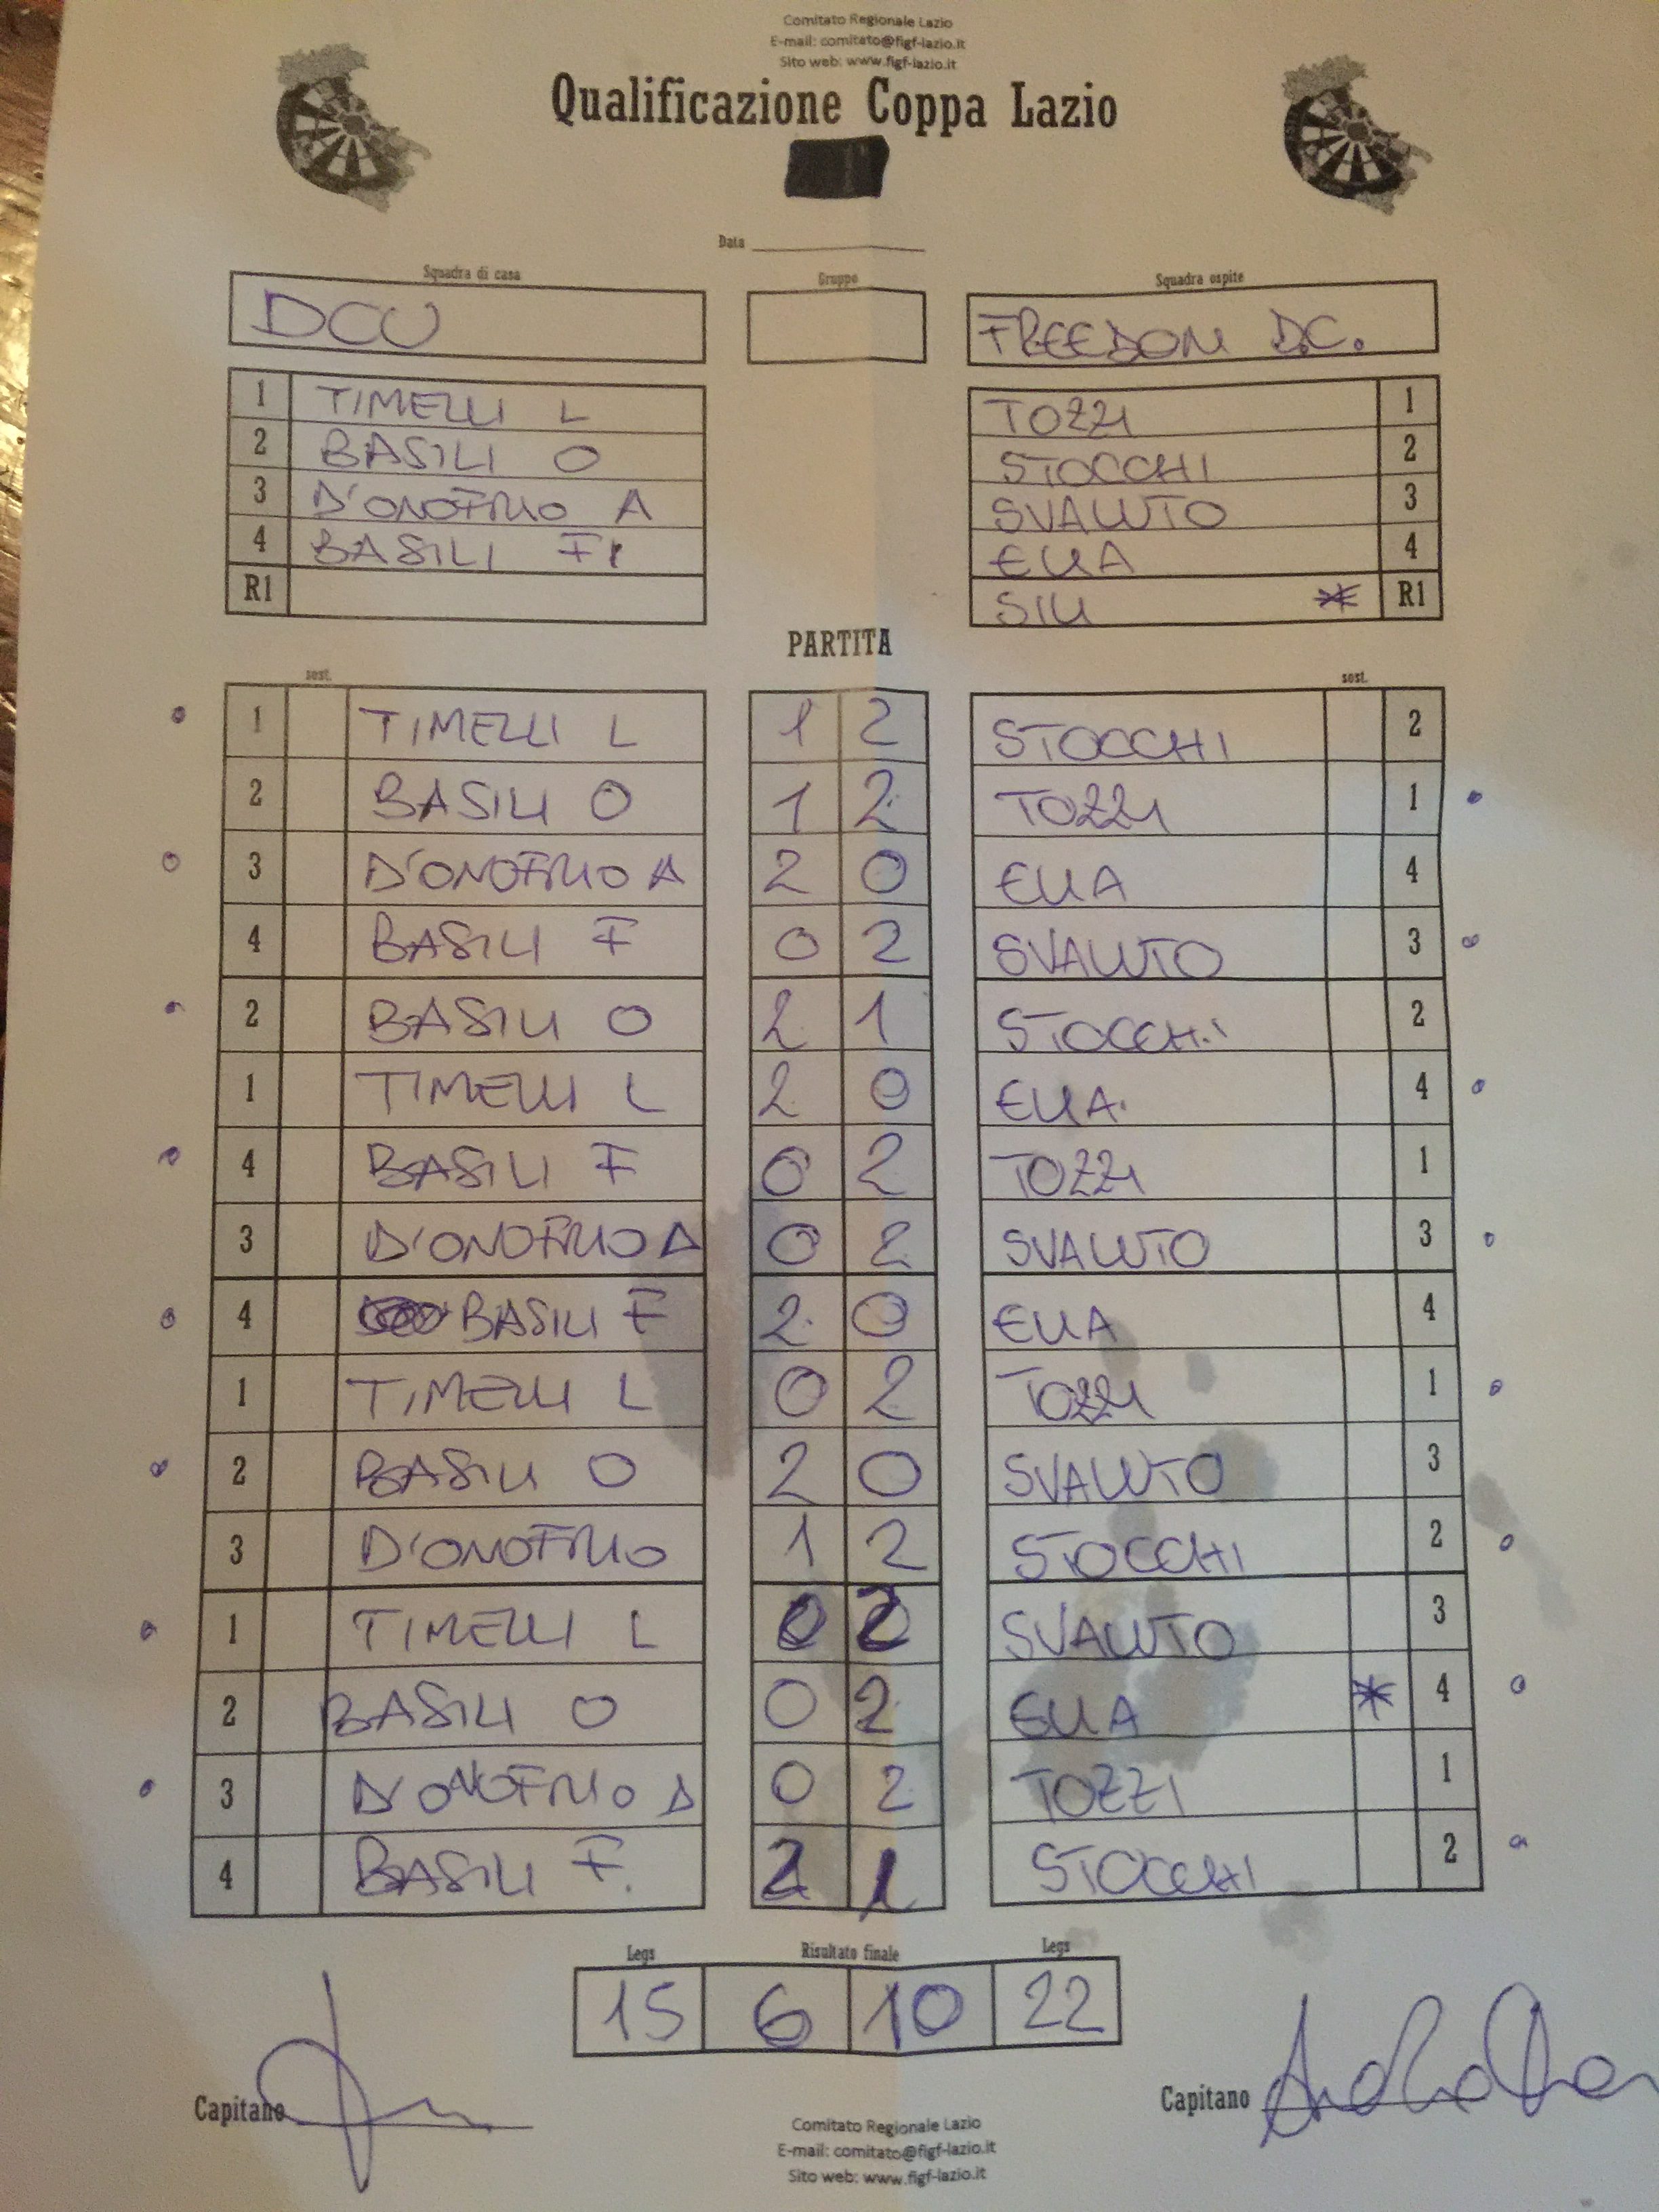 Comitato Regionale Lazio
E-mail: comitato@figf-lazio.it
Sito web: www.figf-lazio.it
Qualificazione Coppa Lazio
Data
Squadra di casa Gruppo Squadra ospite
DCU FREEDOM D.C.
1 TIMELLI L TOZZI 1
2 BASILI O STOCCHI 2
3 D'ONOFRIO A SVALUTO 3
4 BASILI F ELIA 4
R1 SILI * R1
PARTITA
sost. sost.
1 TIMELLI L 1 2 STOCCHI 2
2 BASILI O 1 2 TOZZI 1
3 D'ONOFRIO A 2 0 ELIA 4
4 BASILI F 0 2 SVALUTO 3
2 BASILI O 2 1 STOCCHI 2
1 TIMELLI L 2 0 ELIA 4
4 BASILI F 0 2 TOZZI 1
3 D'ONOFRIO A 0 2 SVALUTO 3
4 BASILI F 2 0 ELIA 4
1 TIMELLI L 0 2 TOZZI 1
2 BASILI O 2 0 SVALUTO 3
3 D'ONOFRIO 1 2 STOCCHI 2
1 TIMELLI L 0 2 SVALUTO 3
2 BASILI O 0 2 ELIA * 4
3 D'ONOFRIO A 0 2 TOZZI 1
4 BASILI F. 2 1 STOCCHI 2
Legs Risultato finale Legs
15 6 10 22
Capitano Capitano
Comitato Regionale Lazio
E-mail: comitato@figf-lazio.it
Sito web: www.figf-lazio.it